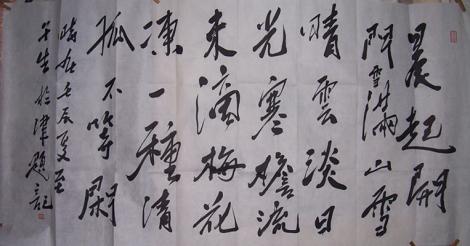 晨起開
門雪滿山雪
晴雲淡日
光寒檐流
未滴梅花
凍一種清
孤不等閑
時在壬辰夏至
生於津題記